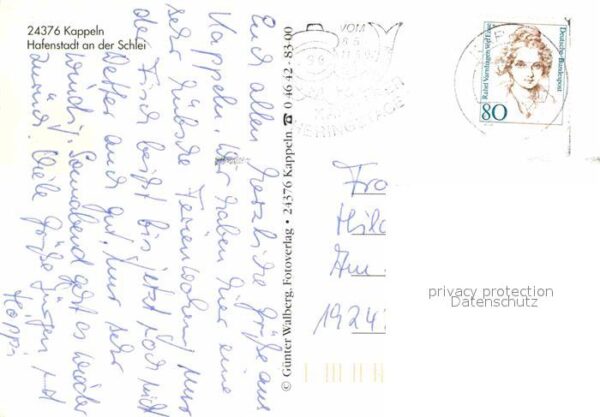 24376 Kappeln
Hafenstadt an der Schlei
Euch allen herzliche Grüße aus
Kappeln. Wir haben hier eine
sehr hübsche Ferienwohnung, nur
der Fisch beißt bis jetzt noch nicht
Wetter auch gut, nur sehr
windig. Sonnabend geht es wieder
zurück. Viele Grüße Jürgen und
© Günter Walberg, Fotoverlag • 24376 Kappeln, ☎ 0 46 42 - 83 00
VOM
HERINGSTAGE
Rahel Varnhagen von Ense
Deutsche Bundespost
80
Fra
Hild
Am
1924
privacy protection
Datenschutz